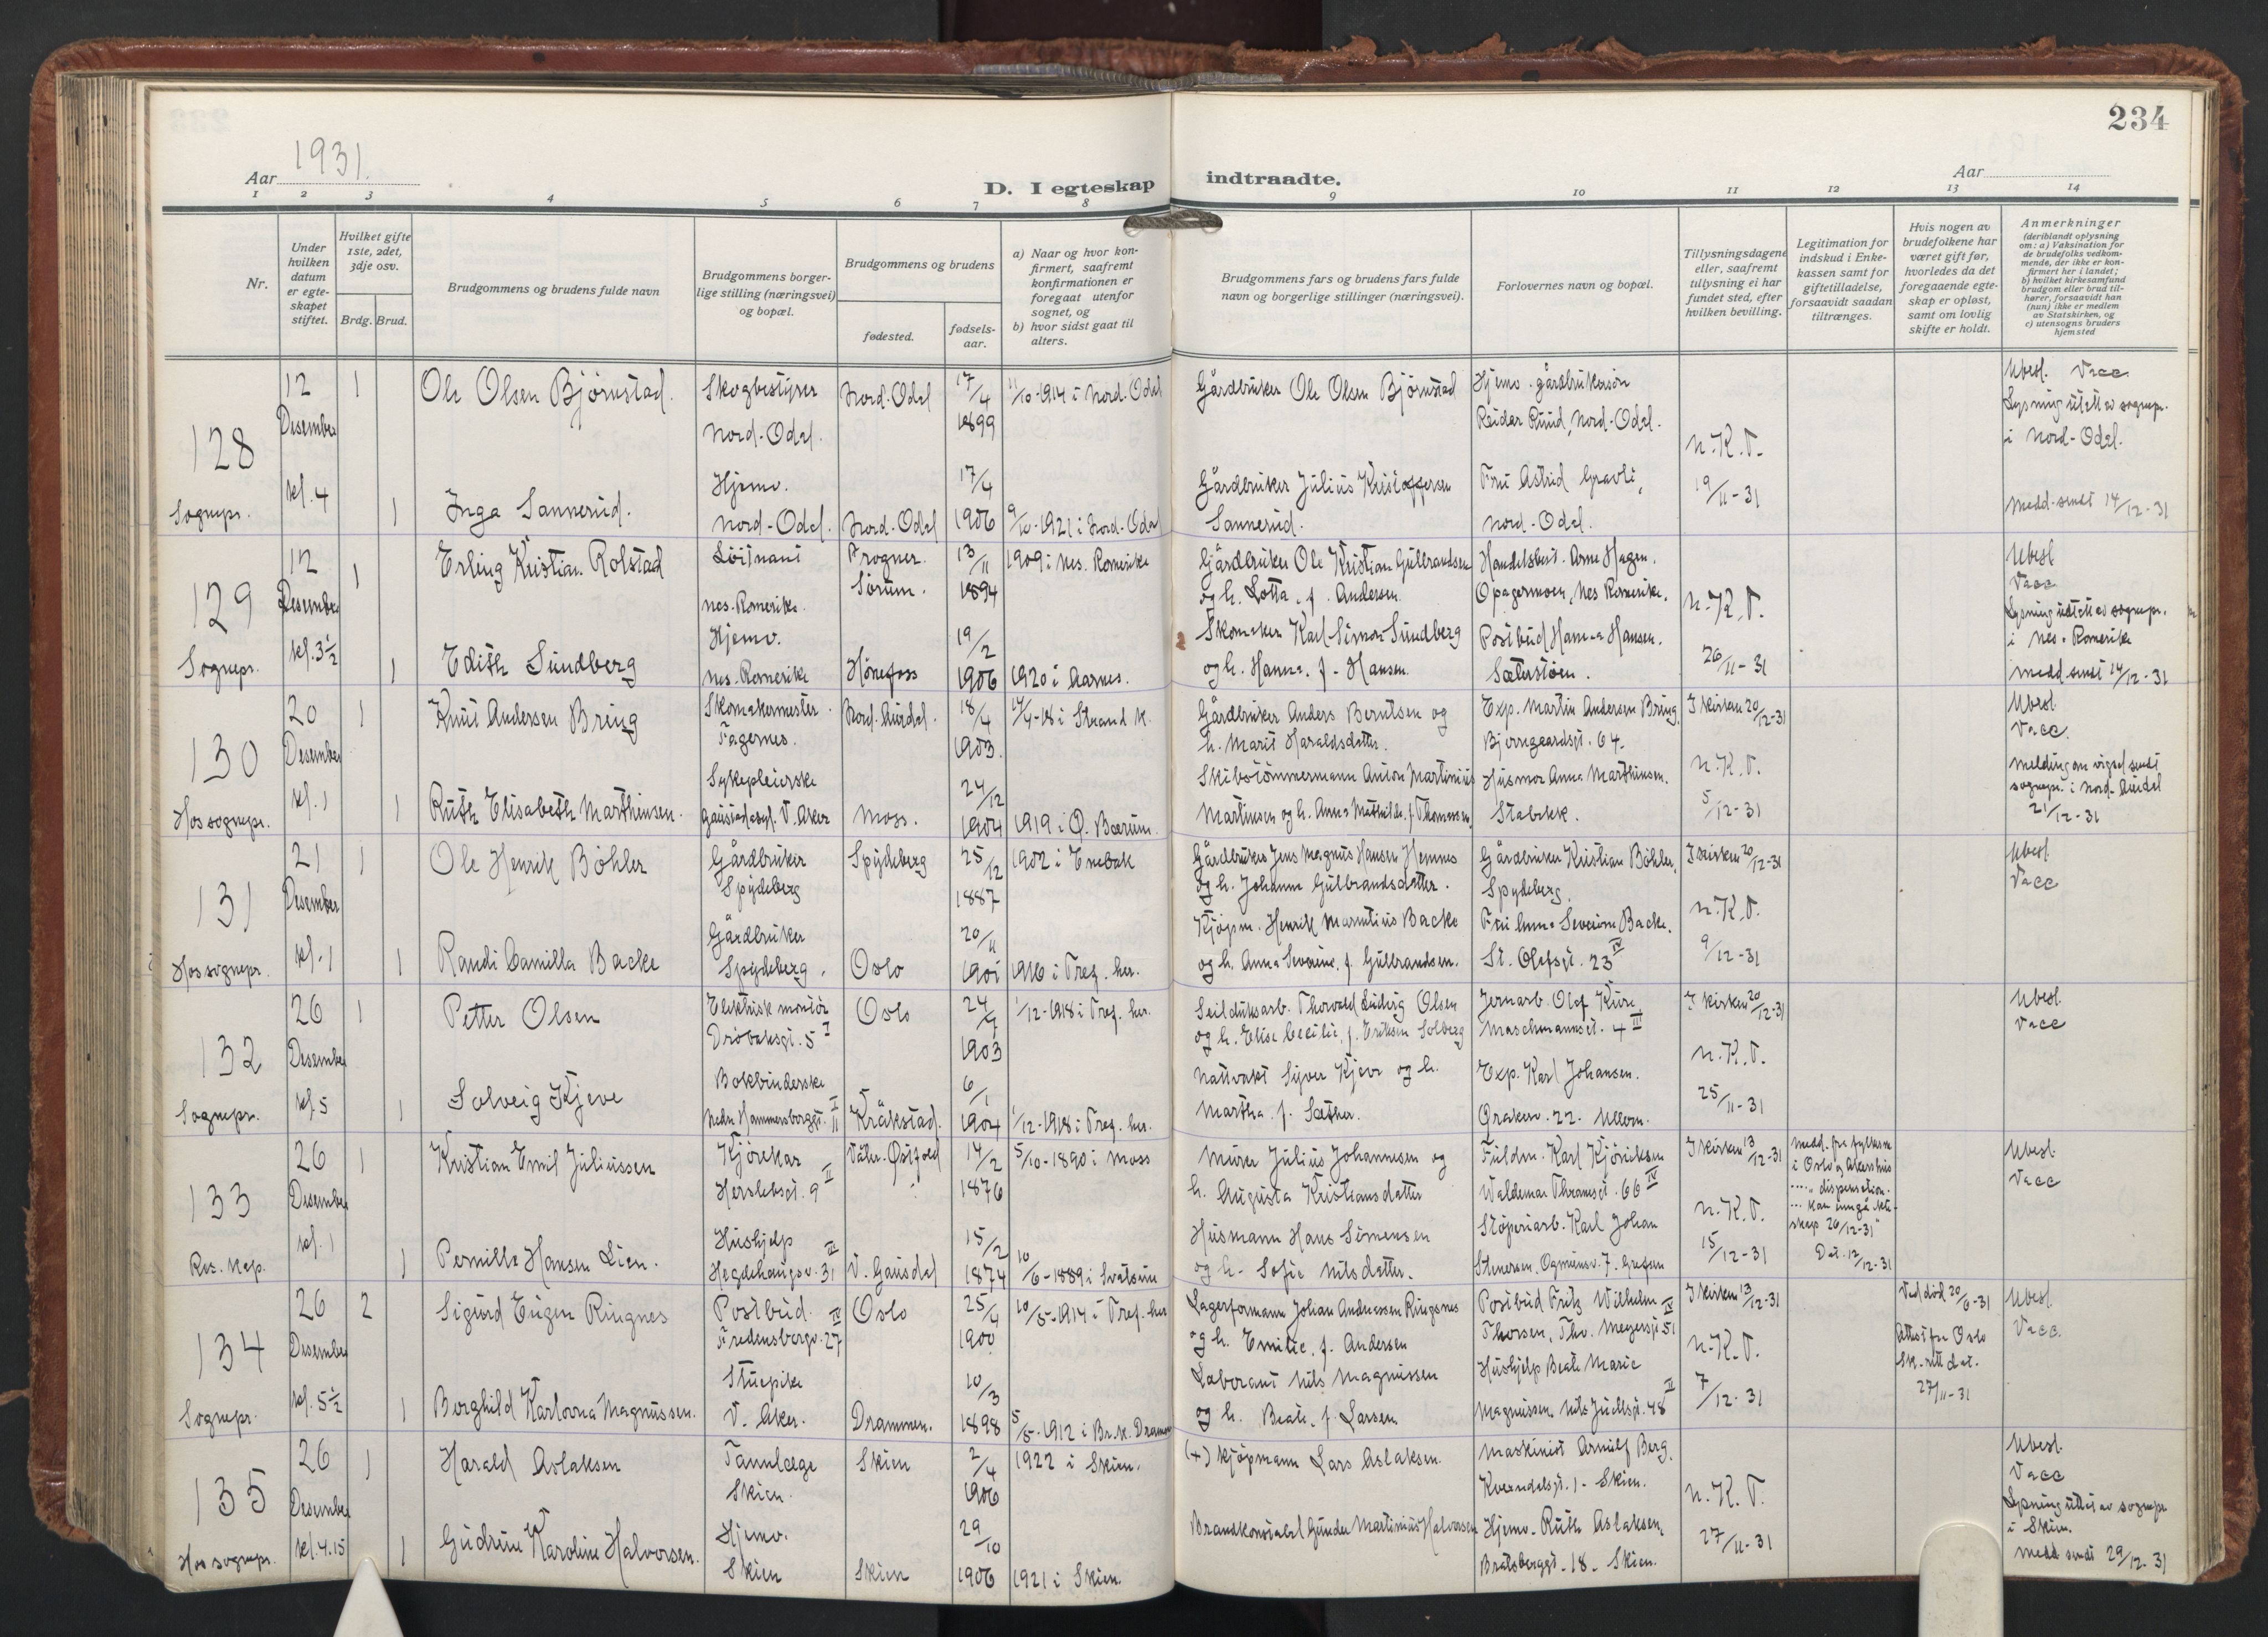 234
Aar 1931.
D. I egteskap indtraadte.
Aar
1 2 3 4 5 6 7 8 9 10 11 12 13 14
Nr.
Under hvilken datum er egteskapet stiftet.
Hvilket gifte 1ste, 2det, 3dje osv.
Brdg. Brud.
Brudgommens og brudens fulde navn
Brudgommens borgerlige stilling (næringsvei) og bopæl.
Brudgommens og brudens
fødested.
fødselsaar.
a) Naar og hvor konfirmert, saafremt konfirmationen er foregaat utenfor sognet, og
b) hvor sidst gaat til alters.
Brudgommens fars og brudens fars fulde navn og borgerlige stillinger (næringsvei).
Forlovernes navn og bopæl.
Tillysningsdagene eller, saafremt tillysning ei har fundet sted, efter hvilken bevilling.
Legitimation for indskud i Enkekassen samt for giftetilladelse, forsaavidt saadan tiltrænges.
Hvis nogen av brudefolkene har været gift før, hvorledes da det foregaaende egteskap er opløst, samt om lovlig skifte er holdt.
Anmerkninger
(deriblandt oplysning om: a) Vaksination for de brudefolks vedkommende, der ikke er konfirmert her i landet; b) hvilket kirkesamfund brudgom eller brud tilhører, forsaavidt han (hun) ikke er medlem av Statskirken, og c) utensogns bruders hjemsted
128
Sognepr.
12 Desember kl. 4
1
Ole Olsen Bjørnstad.
Skogbestyrer
Nord-Odal.
Nord-Odal
17/4 1899
11/10-1914 i Nord-Odal
Gårdbruker Ole Olsen Bjørnstad
Hjemv. gårdbrukersøn
Reidar Ruud, Nord-Odal.
N.K.T.
19/11-31
Ubesl. Vacc.
Lysning utstt av sognepr.
i Nord-Odal.
Medd. sendt 14/12-31
1
Inga Sannerud.
Hjemv.
Nord-Odal.
Nord-Odal
17/4 1906
9/10-1921 i Nord-Odal
Gårdbruker Julius Kristoffersen
Sannerud.
Fru Astrid Gravli,
Nord-Odal.
129
Sognepr.
12 Desember kl. 3½
1
Erling Kristian Rolstad
Løitnant
Nes-Romerike.
Frogner.
Sørum.
13/11 1894
1909 i Nes. Romerike
Gårdbruker Ole Kristian Gulbrandsen
og h. Lotta. f. Andersen.
Handelsbest. Arne Hagen.
Opagermoen, Nes Romerike.
N.K.T.
26/11-31
Ubesl
Vacc
Lysning utstt av sognepr.
i Nes-Romerike
Medd sendt 14/12-31
1
Edith Sundberg
Hjemv.
Nes-Romerike
Hønefoss
19/2 1906
1920 i Aarnes.
Skomaker Karl Simon Sundberg
og h. Hanna. f. Hansen.
Postbud Hanna Hansen.
Sæterstøen.
130
Hos sognepr.
20 Desember kl. 1
1
Knut Andersen Bring
Skomakermester.
Fagernes.
Nord-Aurdal.
18/4 1903.
14/4-18 i Strand k.
Gårdbruker Anders Berntsen og
h. Marit Haraldsdatter.
Exp. Martin Andersen Bring.
Bjerregaardsgt. 64.
I kirken 20/12-31
N.K.T.
5/12-31
Ubesl.
Vacc.
Melding om vigsel sendt
sognepr. i Nord-Aurdal
21/12-31
1
Ruth Elisabeth Marthinsen.
Sykepleierske
Gaustad asyl. V. Aker
Moss.
24/12 1904
1919 i Ø. Bærum.
Skibstømmermann Anton Martinius
Martinsen og h. Anna Mathilde f. Thomassen.
Husmor Anna Marthinsen.
Stabekk.
131
Hos sognepr.
21 Desember kl. 1
1
Ole Henrik Bøhler
Gårdbruker
Spydeberg
Spydeberg
25/12 1887
1902 i Enebak
Gårdbruker Jens Magnus Hansen Hemnes
og h. Johanne Gulbrandsdatter.
Gårdbruker Kristian Bøhler,
Spydeberg.
I kirken 20/12-31
N.K.T.
9/12-31
Ubesl.
Vacc
1
Randi Camilla Backe
Gårdbruker
Spydeberg.
Oslo
20/11 1901
1916 i Tref. her.
Kjøpm. Henrik Mauritius Backe
og h. Anna Severine, f. Gulbrandsen.
Fru Anna Severine Backe.
St. Olafsgt. 23 IV
132
Sognepr.
26 Desember kl. 5
1
Petter Olsen
Elektrisk montør
Drøbaksgt. 5 I
Oslo
24/7 1903
1/12-1918 i Tref. her.
Seilduksarb. Thorvald Ludvig Olsen
og h. Elise Cecilie, f. Eriksen Solberg
Jernarb. Olaf Kure
Maschmannsgt. 4 III
I kirken 20/12-31
N.K.T.
25/11-31
Ubesl.
Vacc
1
Solveig Kjeve
Bokbinderske
Nedre Hammersborggt. II
Kråkstad.
6/1 1904
1/12-1918 i Tref. her.
Nattvakt Syver Kjeve og h.
Martha. f. Sæther.
Exp. Karl Johansen.
Øraker v. 22. Ullern.
133
Res. kap.
26 Desember kl. 1
1
Kristian Emil Juliussen
Kjørekar
Herslebsgt. 9 II
Våler. Østfold
14/2 1876
5/10-1890 i Moss
Murer Julius Johannesen og
h. Augusta Kristiansdatter
Fuldm. Karl Kjøricksen
Waldemar Thranesgt. 66 IV
I kirken 13/12-31
N.K.T.
15/12-31
Medd. fra fylkesm
i Oslo og Akershus
.... dispensation.
... kan inngå ekteskap 26/12-31"
Dat. 12/12-31
Ubesl.
Vacc
1
Pernille Hansen Lien.
Hushjelp
Hegdehaugsv. 31 III
V. Gausdal
15/2 1874
10/6-1889 i Svatsum
Husmann Hans Simensen
og h. Sofie Nilsdatter.
Støperiarb. Karl Johan
Stenersen. Ogmunsv. 7. Grefsen
134
Sognepr.
26 Desember kl. 5½
2
Sigurd Eugen Ringnes
Postbud.
Fredensborgv. 27 IV
Oslo
25/4 1900
10/5-1914 i Tref. her
Lagerformann Johan Andreassen Ringnes
og h. Emilie, f. Andersen
Postbud Fritz Wilhelm
Thorsen, Thv. Meyersgt. 51 IV
I kirken 13/12-31
N.K.T.
7/12-31
Ved død 20/6-31
Attest fra Oslo
Sk.rett dat.
27/11-31
Ubesl.
Vacc.
1
Borghild Karlovna Magnussen.
Stuepike
V. Aker.
Drammen.
10/3 1898
5/5-1912 i Br.k. Drammen
Laborant Nils Magnussen
og h. Beate, f. Larsen
Hushjelp Beate Marie
Magnussen Nils Juellsgt. 48 II
135
Hos sognepr.
26 Desember kl. 4.15
1
Harald Aslaksen
Tannlæge
Skien.
Skien
2/4 1906
1922 i Skien.
(+) Kjøpmann Lars Aslaksen.
Maskinist Arnulf Berg.
Kverndalsgt. 1 - Skien.
N.K.T.
27/11-31
Ubesl.
Vacc
Lysning uttat av sognepr.
i Skien.
Medd sendt 29/12-31
1
Gudrun Karoline Halvorsen.
Hjemv.
Skien
Skien
29/10 1906
1921 i Skien.
Brandkonstabel Gunder Martinius Halvorsen
Hjemv. Ruth Aslaksen,
Bratsberggt. 18. Skien.